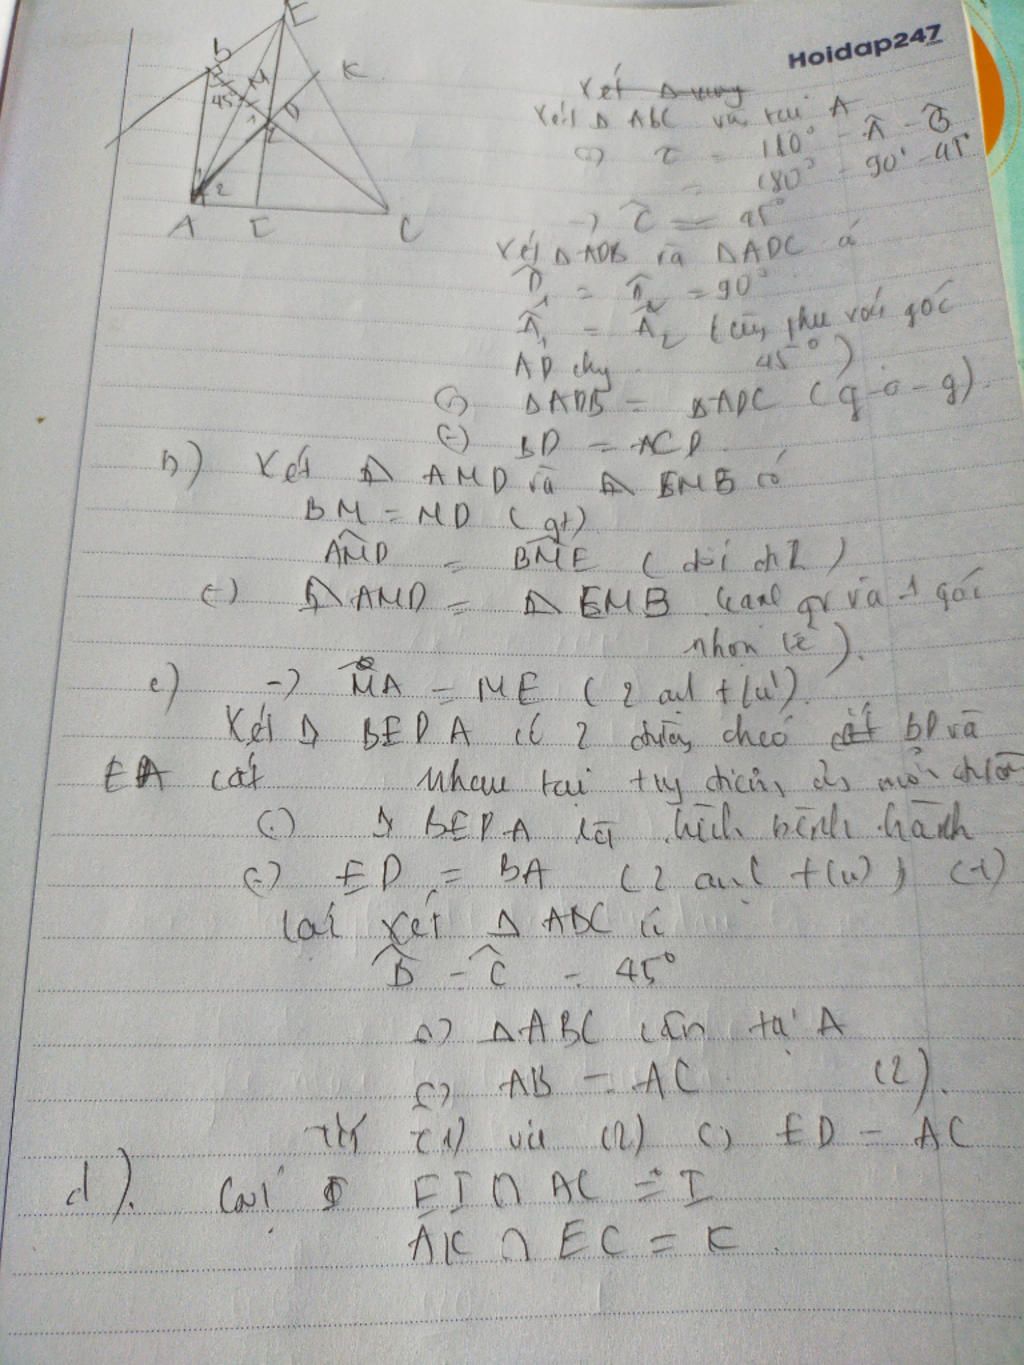 Hoidap247
.com
E
b
M
K
45°
D
1
2
1
2
A
I
C
Xét Δ vuông
Xét Δ ABC vg tại A
=) C = 180° - Â - B̂
= 180° - 90° - 45°
=) Ĉ = 45°
Xét Δ ADB và Δ ADC có
D̂₁ = D̂₂ = 90°
Â₁ = Â₂ (cùng phụ với góc
AD chg 45°)
=) Δ ADB = Δ ADC (g-c-g).
=) BD = CD
b) Xét Δ AMD và Δ EMB có
BM = MD (gt)
AMD = BME (đối đỉnh)
=) Δ AMD = Δ EMB (cạnh gv và 1 góc
nhọn kề).
c) -) MA = ME (2 cạnh t/ứ).
Xét BEDA có 2 đường chéo BD và
EA cắt nhau tại trung điểm của mỗi đường
=) BEDA là hình bình hành
=) ED = BA (2 cạnh t/ứ) (1)
Lại xét Δ ABC có
B̂ = Ĉ = 45°
=) Δ ABC cân tại A
=) AB = AC (2).
Từ (1) và (2) =) ED = AC
d). Gọi EI ∩ AC = I
AK ∩ EC = K.